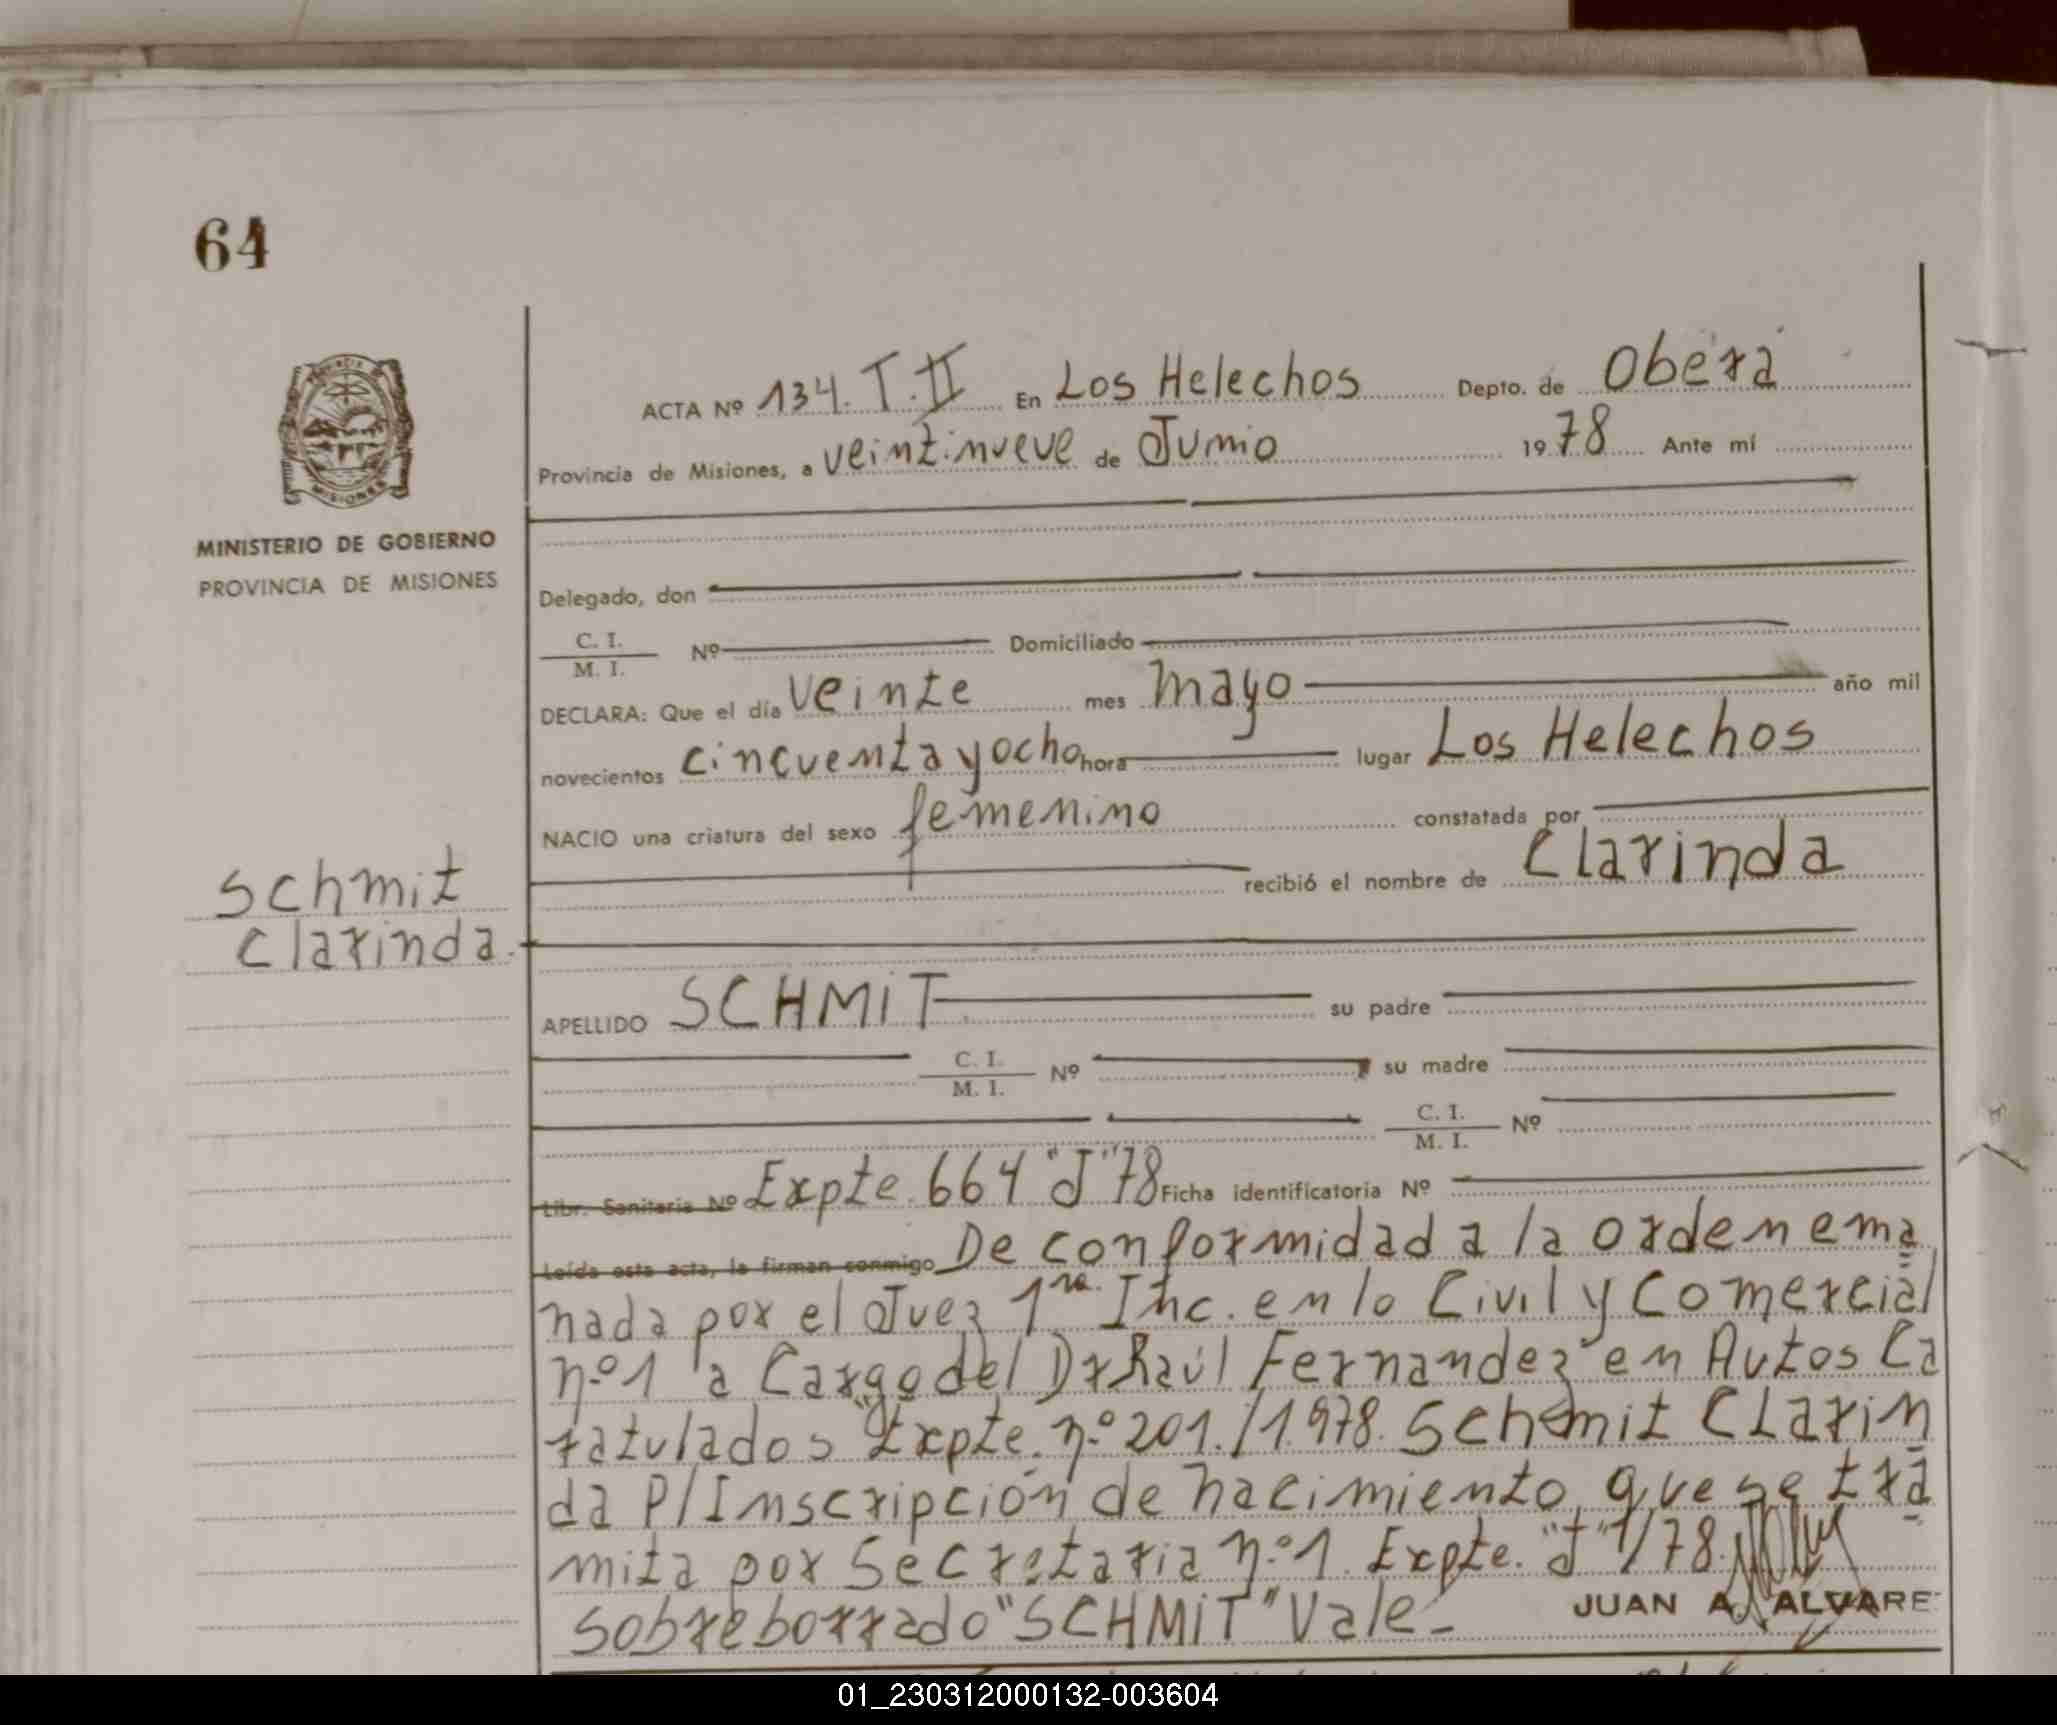 64
MINISTERIO DE GOBIERNO
PROVINCIA DE MISIONES
Schmit
Clarinda.
ACTA Nº 134. T. II En Los Helechos Depto. de Oberá
Provincia de Misiones, a veintinueve de Junio 1978 Ante mí
Delegado, don
C. I.
M. I. Nº Domiciliado
DECLARA: Que el día veinte mes mayo año mil
novecientos cincuenta y ocho hora lugar Los Helechos
NACIO una criatura del sexo femenino constatada por
recibió el nombre de Clarinda
APELLIDO SCHMIT su padre
C. I.
M. I. Nº su madre
C. I.
M. I. Nº
Libr. Sanitaria Nº Expte. 664 "J" 78 Ficha identificatoria Nº
Leída esta acta, la firman conmigo De conformidad a la orden ema
nada por el Juez 1ra. Inc. en lo Civil y Comercial
n.º 1 a Cargo del Dr Raúl Fernandez en Autos Ca
ratulados "Expte. n.º 201./1.978. Schmit CLarin
da P/Inscripción de nacimiento, que se tra
mita por Secretaria n.º 1. Expte. "J" 1/78.
sobreborrado "SCHMIT" Vale -
JUAN A. ALVARE
01_230312000132-003604